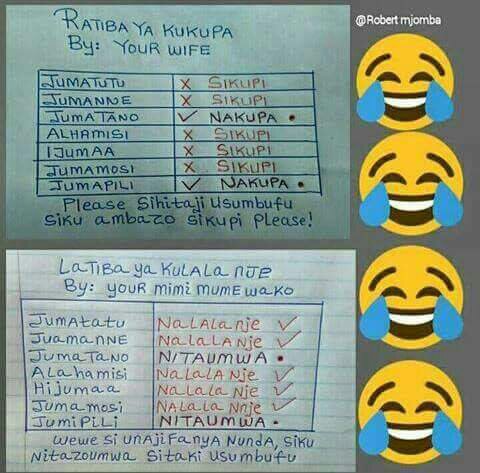 @Robert mjomba
RATIBA YA KUKUPA
By: YOUR WIFE
JUMATUTU X SIKUPI
JUMANNE X SIKUPI
JUMATANO ✓ NAKUPA •
ALHAMISI X SIKUPI
IJUMAA X SIKUPI
JUMAMOSI X SIKUPI
JUMAPILI ✓ NAKUPA •
Please Sihitaji Usumbufu
Siku ambazo sikupi Please!
LATIBA ya KULALA NJE
By: youR mimi mUmE wako
JumAtatu NaLALa nje ✓
JuamaNNE NaLaLA Nje ✓
JumaTaNO NITAUMWA •
ALahamisi NaLALA Nje ✓
Hijumaa NaLALa Nje ✓
Jumamosi NALaLa Nnje ✓
JumiPiLi NITAUMWA •
wewe Si UNAjiFanya NUNDA, SIKU
Nitazoumwa SitaKi uSumbuFu